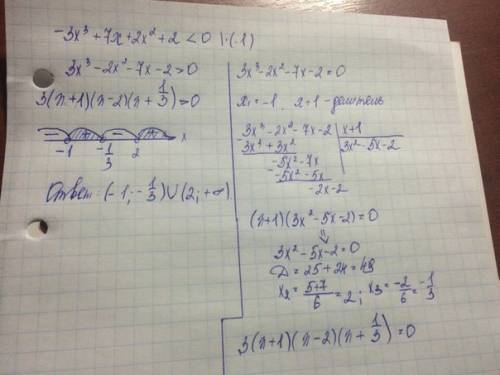 -3x³ + 7x + 2x² + 2 < 0 |·(-1)
3x³ - 2x² - 7x - 2 > 0
3(x+1)(x-2)(x+1/3) > 0
- + - + x
-1 -1/3 2
Ответ: (-1; -1/3) ∪ (2; +∞)
3x³ - 2x² - 7x - 2 = 0
x₁ = -1, x+1 - делитель
3x³ - 2x² - 7x - 2 | x+1
3x³ + 3x² | 3x² - 5x - 2
-5x² - 7x
-5x² - 5x
-2x - 2
(x+1)(3x² - 5x - 2) = 0
⇓
3x² - 5x - 2 = 0
D = 25 + 24 = 49
x₂ = (5+7)/6 = 2; x₃ = -2/6 = -1/3
3(x+1)(x-2)(x+1/3) = 0